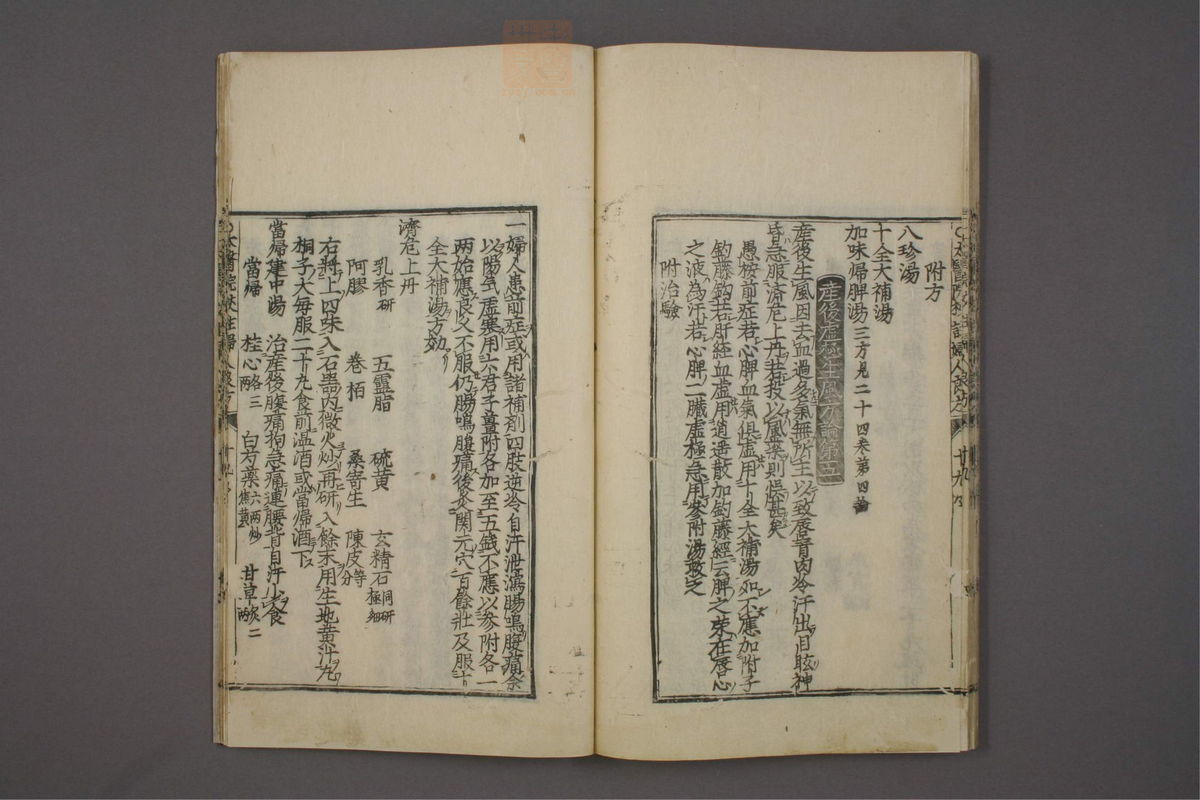 附方
八珍湯
十全大補湯
加味帰脾湯 三方見二十四巻第四論
産後虚極生風方論第五
産後生風因去血過多氣無所主以致唇青肉冷汗出目眩神
昏急服済危上丹若投以風藥則悞甚矣
愚按前症若心脾血氣俱虚用十全大補湯如不應加附子
鈎藤鈎若肝経血虚用逍遥散加鈎藤經云脾之荣在唇心
之液為汗若心脾二臓虚極急用參附湯救之
附治驗
一婦人患前症或用諸補剤四肢逆冷自汗泄瀉膓鳴腹痛余
以陽氣虚寒用六君子薑附各加至五錢不應以参附各一
两始應良久不服仍膓鳴腹痛後灸関元穴百餘壮及服十
全大補湯方効
濟危上丹
乳香研 五靈脂 硫黄 玄精石同研極細
阿膠 巻栢 桑寄生 陳皮等分
右将上四味入石噐内微火炒再研入餘末用生地黄汁丸
桐子大毎服二十丸食前温酒或當帰酒下
當帰建中湯 治産後腹痛拘急痛連腰背自汗少食
當帰 桂心各三两 白芍藥六两炒焦黄 甘草炙二两